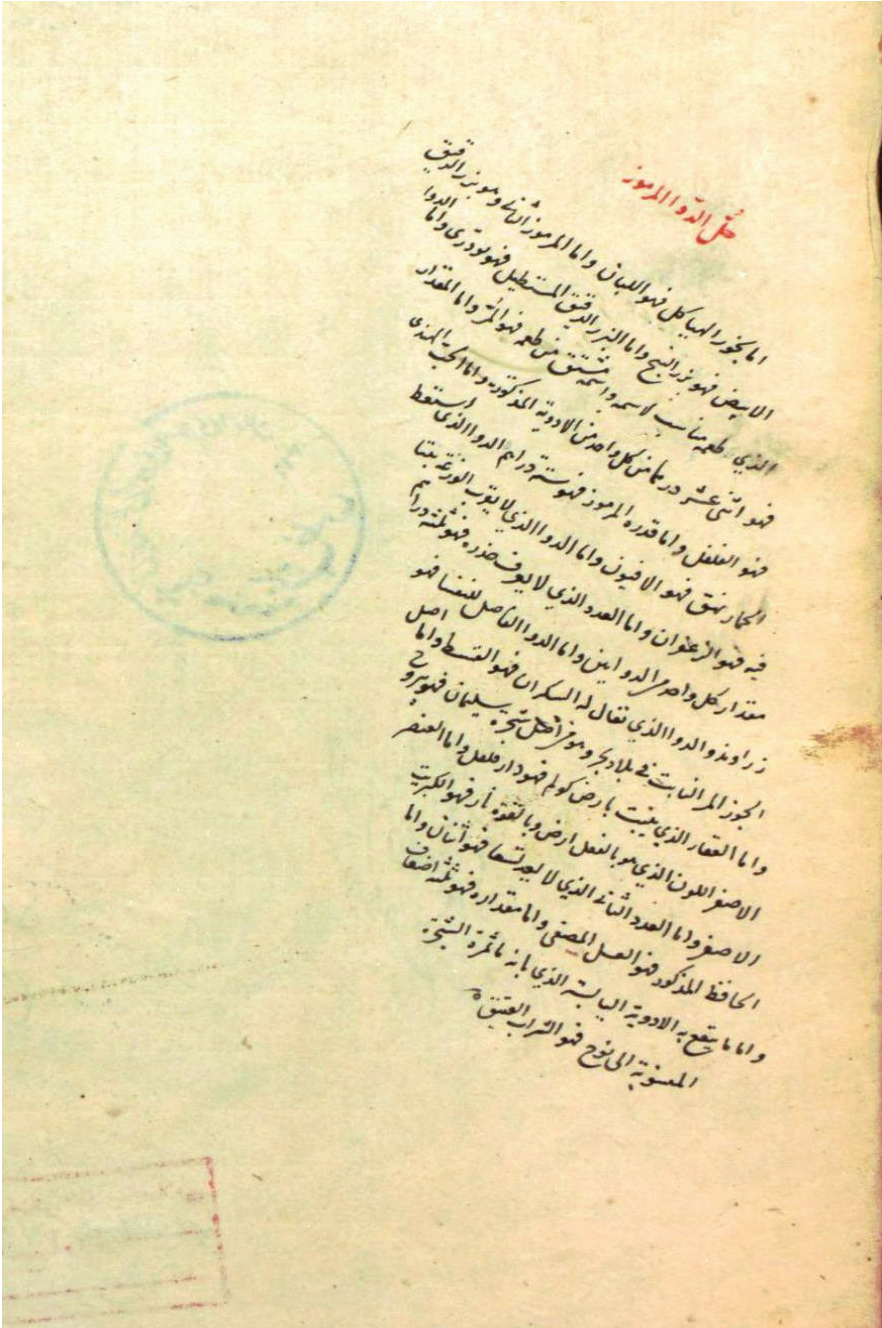 حل الدوا المرموز
اما بخور الهياكل فهو اللبان واما المرموز الثاني وهو بزر الدقيق
الابيض فهو بزر البنج واما البزر الدقيق المستطيل فهو تودرى واما الدوا
الذي طعمه مناسب لاسمه واسمه مشتق من طعمه فهو المر واما المقدار
فهو اثنى عشر درهما من كل واحد من الادوية المذكورة واما الحب الهندى
فهو الفلفل واما قدره المرموز فهو ستة دراهم الدوا الذى استعط
الحمار نهق فهو الافيون واما الدوا الذي لا يقرب الوزغة بيتا
فيه فهو الزعفران واما العدد الذي لا يعرف جذره فهو ثلثه دراهم
مقدار كل واحد من الدواين واما الدوا الفاصل للنفسا فهو
زراوند والدوا الذي تقال له السكران فهو القسط واما اصل
الجوز المر النابت في بلاد وهو من اصل شجرة سليمان فهو يبروح
واما العقار الذي ينبت بارض كولم فهو دار فلفل واما العنصر
الاصفر اللون الذي هو بالفعل ارض وبالقوة نار فهو الكبريت
الاصفر واما العدد الثاني الذي لا يعد تسعا فهو اثنان واما
الحافظ المذكور فهو العسل المصفى واما مقداره فهو ثلثه اضعاف
واما ما ينقع به الادوية اليابسة الذي بانه ماء ثمرة الشجرة
المنسوبة الى نوح فهو الشراب العتيق